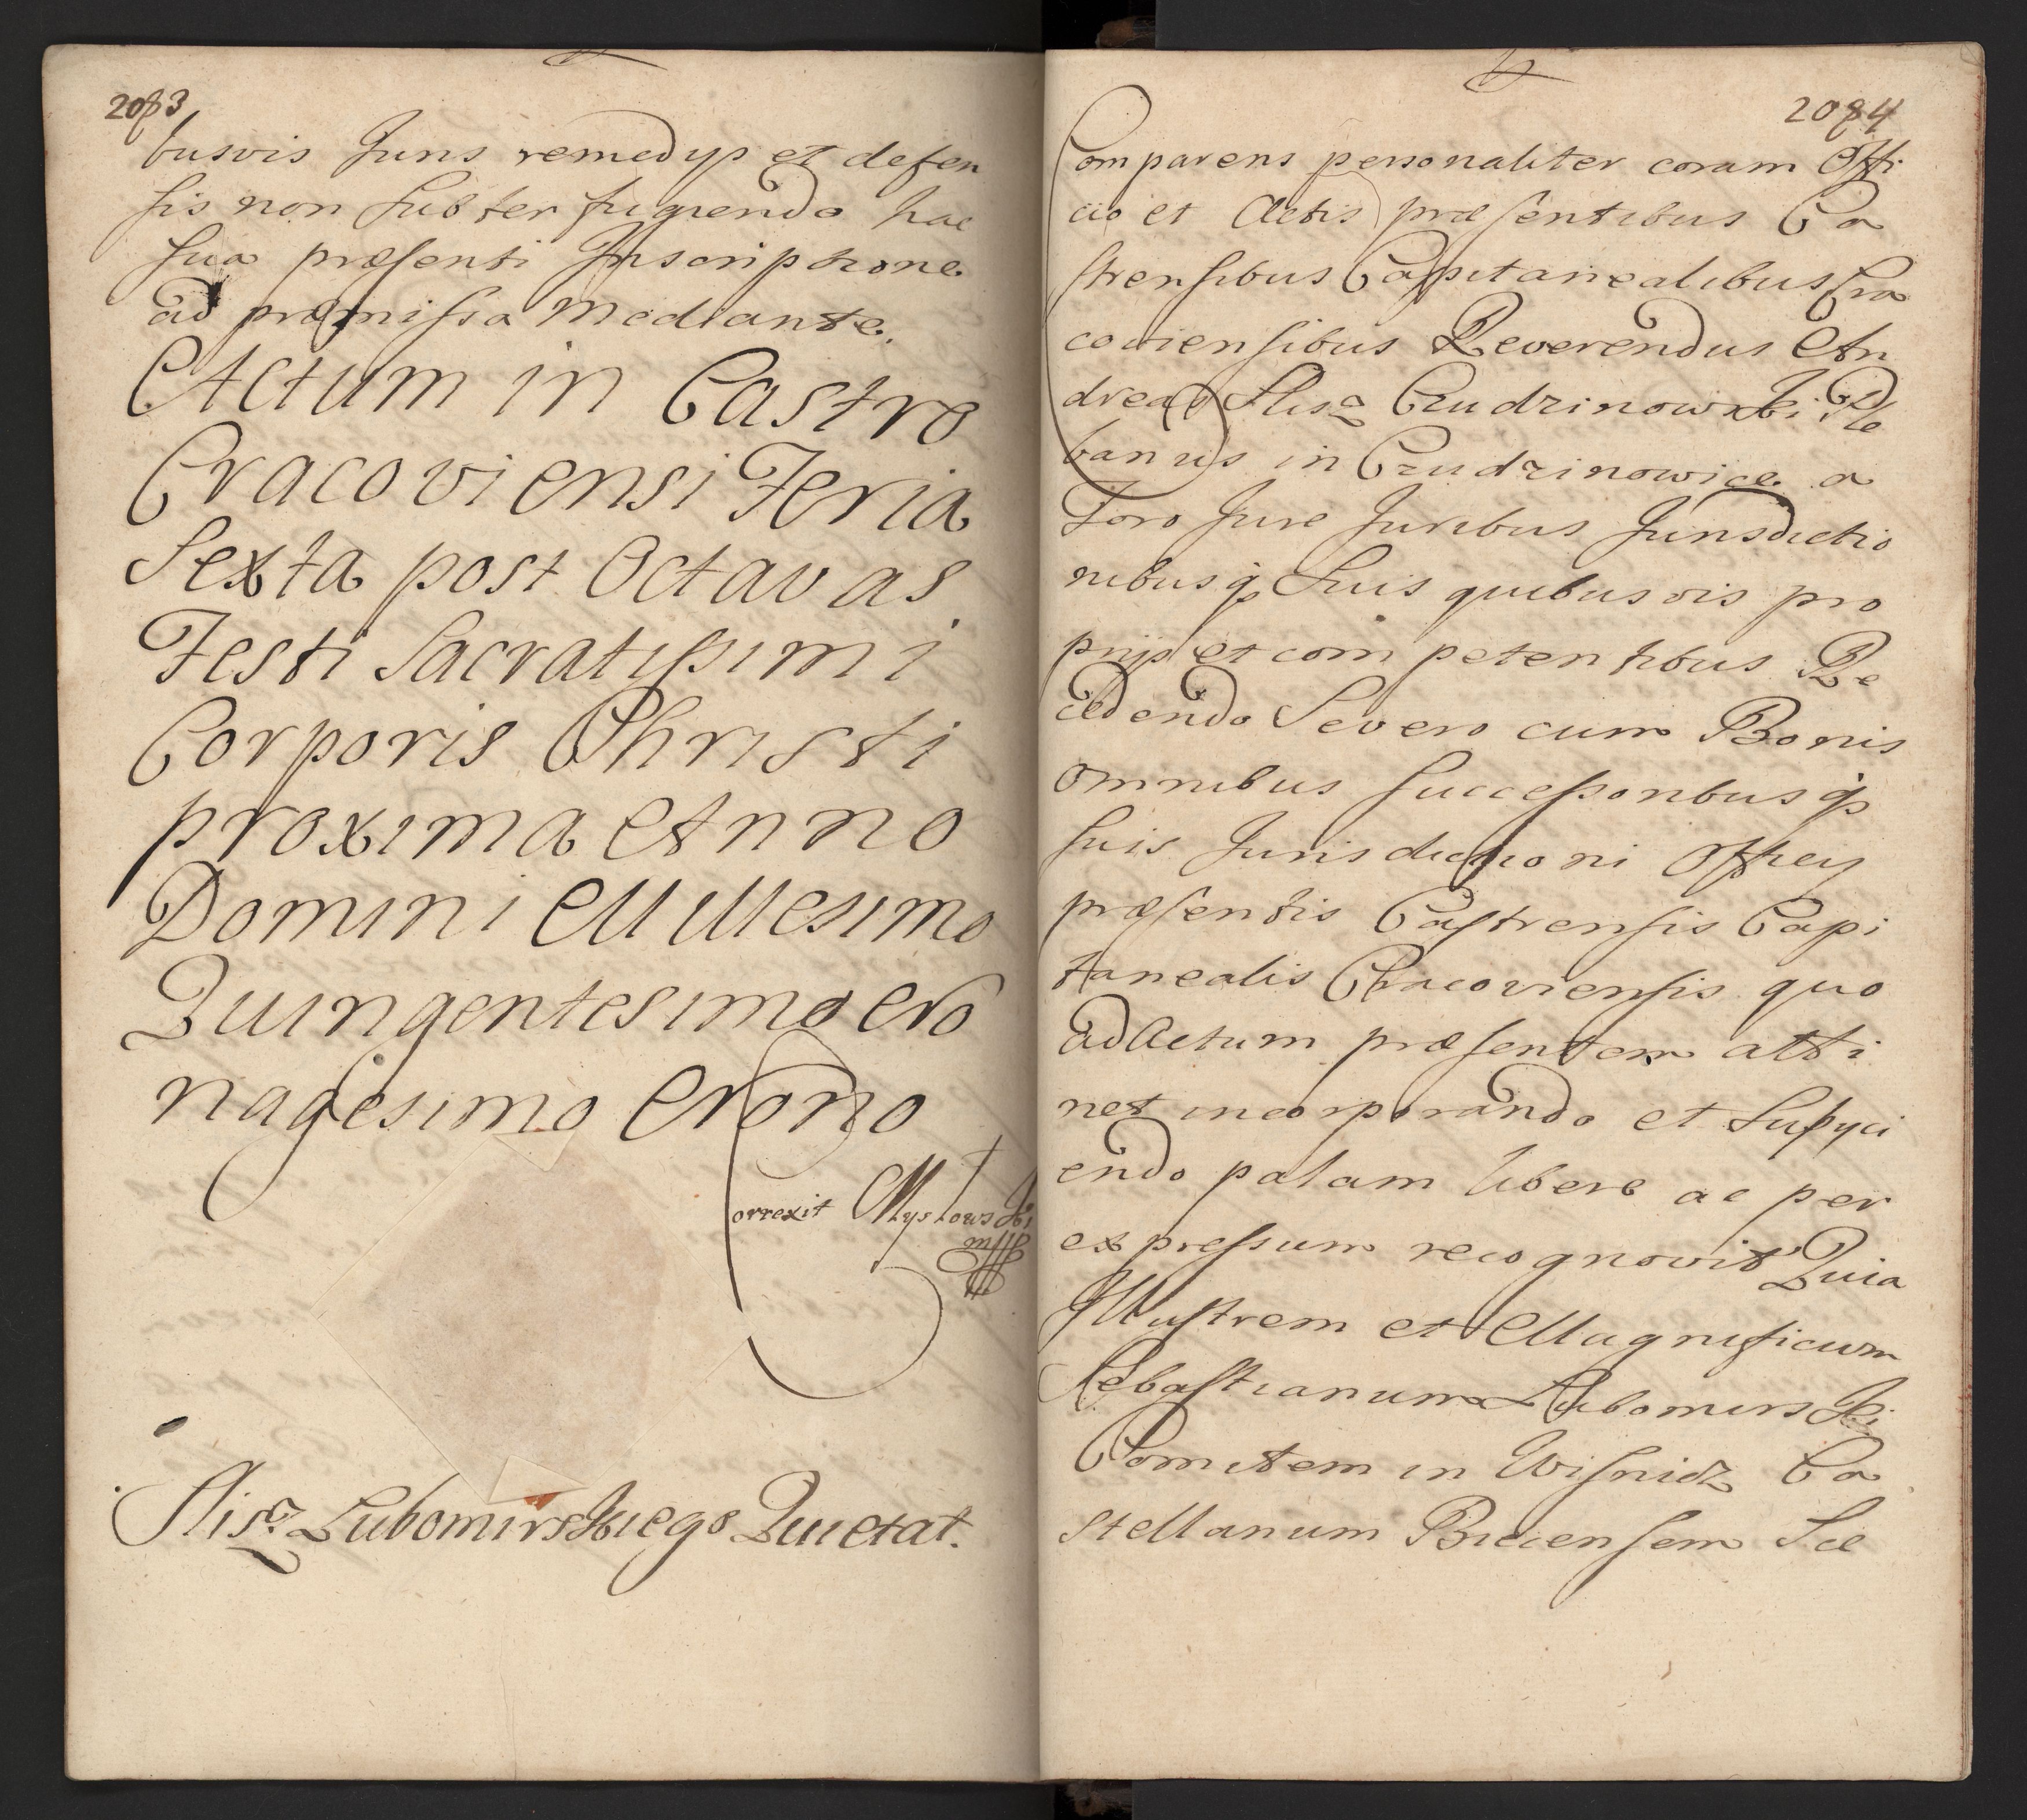 2083
busvis Juris remedijs et defen
sis non Subterfugiendo hac
Sua præsenti Inscriptione
ad præmissa mediante.
Actum in Castro
Cracoviensi Feria
Sexta post Octavas
Festi Sacratissimi
Corporis Christi
proxima Anno
Domini Millesimo
Quingentesimo No
nagesimo Nono
Correxit Mysłowski
mpp
Slisz Lubomirskiego Quietat.
2084
Comparens personaliter coram Offi
cio et Actis præsentibus Ca
strensibus Capitanealibus Cra
coviensibus Reverendus An
dreas Slisz Czudzinowski Ple
banus in Czudzinowice a
Foro Jure Juribus Jurisdictio
nibusq Suis quibusvis pro
prijs et competentibus Re
cedendo Seveo cum Bonis
omnibus Successoribusq
suis Jurisdictioni Officij
præsentis Castrensis Capi
tanealis Cracoviensis quo
ad Actum præsentem atti
net incorporando et Subjici
endo palam libere ac per
expressum recognovit Quia
Illustrem et Magnificum
Sebastianum Lubomirski
Comitem in Wisnicz Ca
stellanum Biecensem Sæ